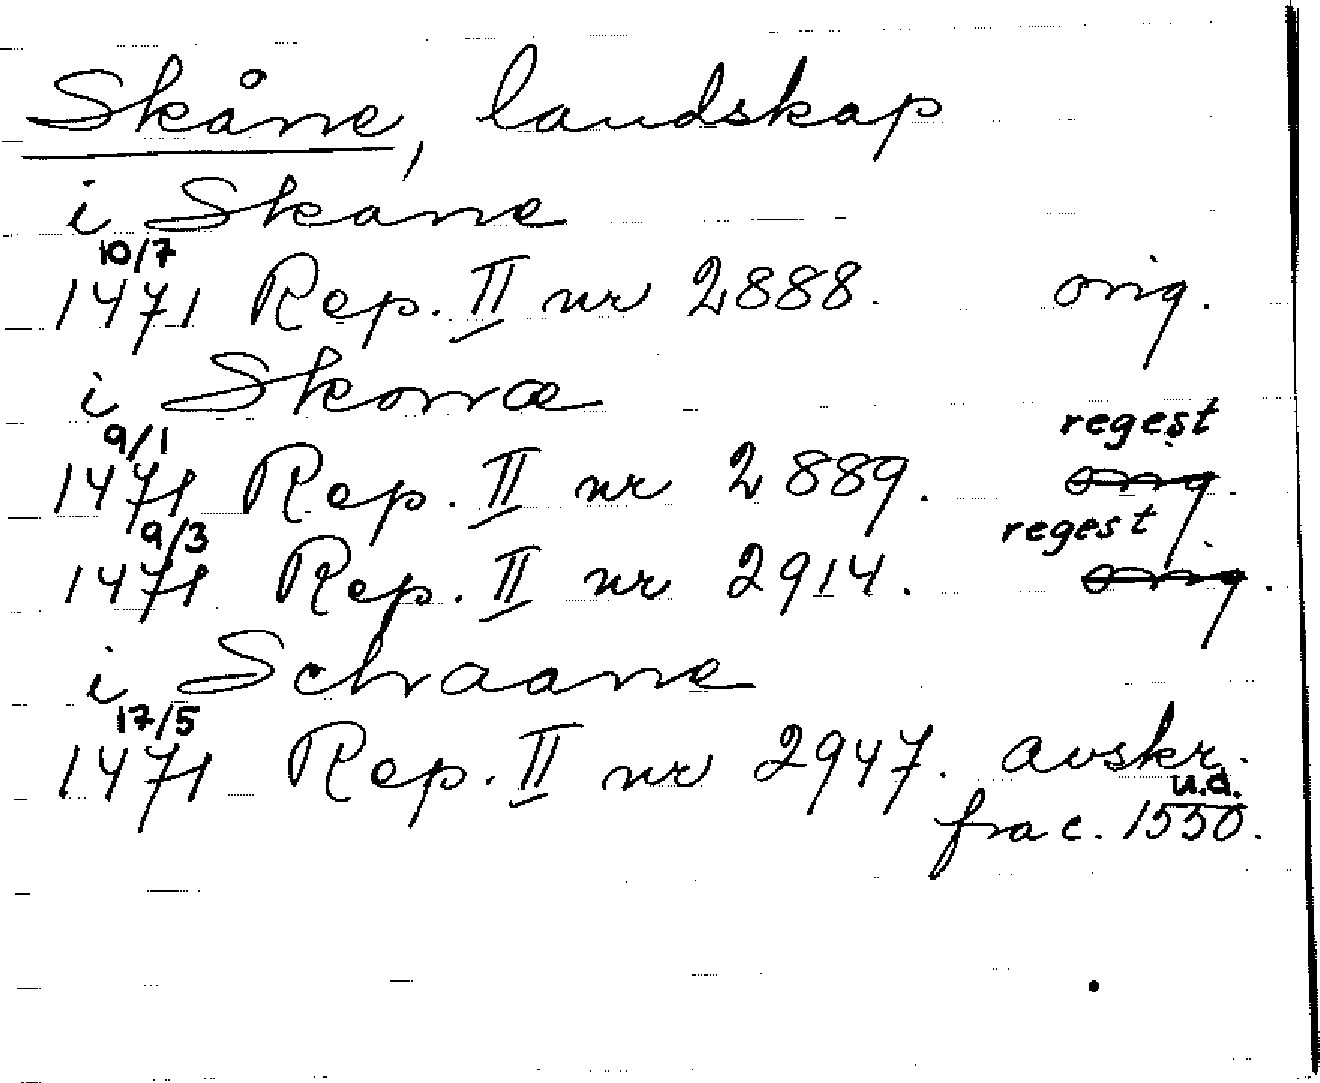 Skåne, landskap
i Skane
10/7
1471 Rep. II nr 2888. orig.
i Skonæ
9/1 regest
1471 Rep. II nr 2889. orig.
9/3 regest
1471 Rep. II nr 2914. orig.
i Schraane
17/5
1471 Rep. II nr 2947. avskr.
u.d.
fra c. 1550.